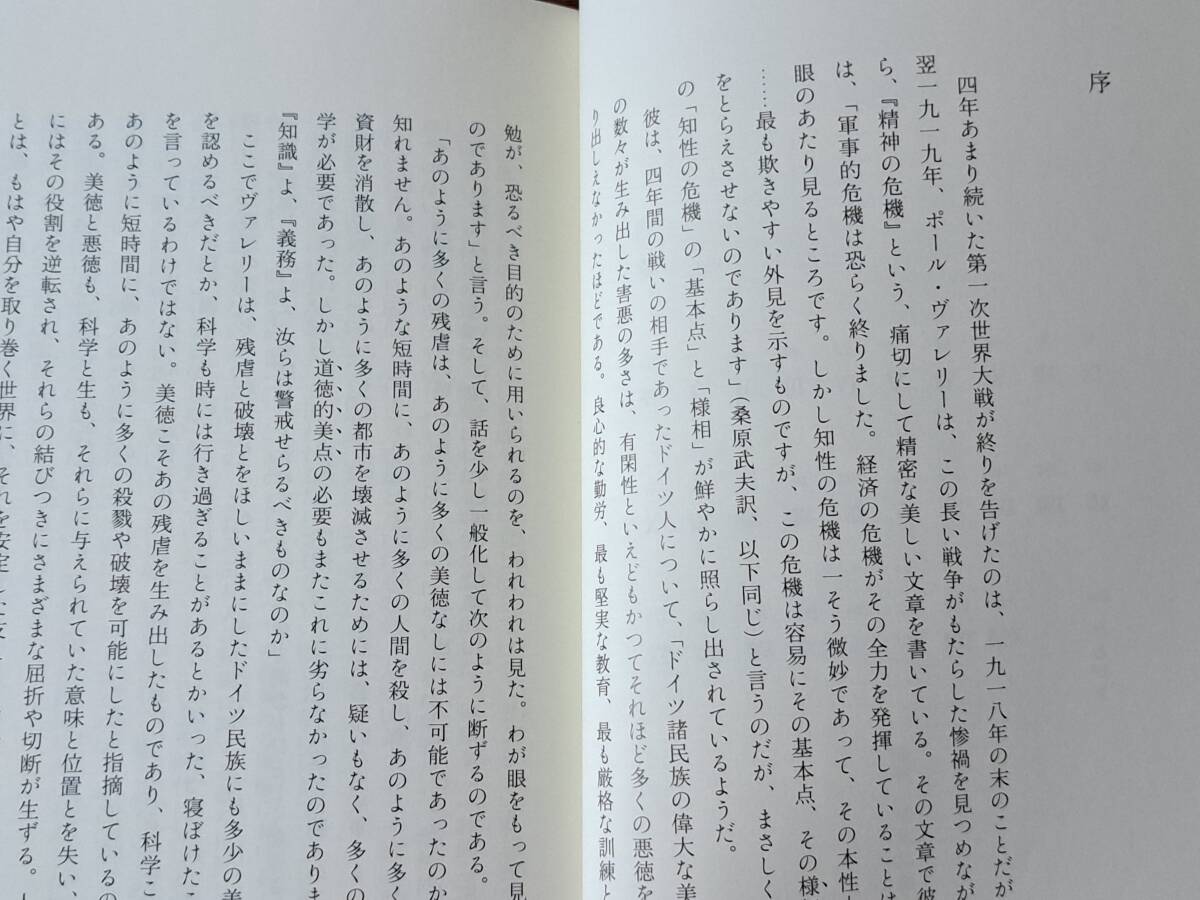 序
四年あまり続いた第一次世界大戦が終りを告げたのは、一九一八年の末のことだが
翌一九一九年、ポール・ヴァレリーは、この長い戦争がもたらした惨禍を見つめなが
ら、『精神の危機』という、痛切にして精密な美しい文章を書いている。その文章で彼
は、「軍事的危機は恐らく終りました。経済の危機がその全力を発揮していることは
眼のあたり見るところです。しかし知性の危機は一そう微妙であって、その本性
……最も欺きやすい外見を示すものですが、この危機は容易にその基本点、その様
をとらえさせないのであります」（桑原武夫訳、以下同じ）と言うのだが、まさしく
の「知性の危機」の「基本点」と「様相」が鮮やかに照らし出されているようだ。
彼は、四年間の戦いの相手であったドイツ人について、「ドイツ諸民族の偉大な美
の数々が生み出した害悪の多さは、有閑性といえどもかつてそれほど多くの悪徳を
り出しえなかったほどである。良心的な勤労、最も堅実な教育、最も厳格な訓練と
勉が、恐るべき目的のために用いられるのを、われわれは見た。わが眼をもって見
のであります」と言う。そして、話を少し一般化して次のように断ずるのである。
「あのように多くの残虐は、あのように多くの美徳なしには不可能であったのか
知れません。あのような短時間に、あのように多くの人間を殺し、あのように多く
資財を消散し、あのように多くの都市を壊滅させるためには、疑いもなく、多くの
学が必要であった。しかし道徳的美点の必要もまたこれに劣らなかったのでありま
『知識』よ、『義務』よ、汝らは警戒せらるべきものなのか」
ここでヴァレリーは、残虐と破壊とをほしいままにしたドイツ民族にも多少の美
を認めるべきだとか、科学も時には行き過ぎることがあるとかいった、寝ぼけたこ
を言っているわけではない。美徳こそあの残虐を生み出したものであり、科学こ
あのように短時間に、あのように多くの殺戮や破壊を可能にしたと指摘しているの
ある。美徳と悪徳も、科学と生も、それらに与えられていた意味と位置とを失い、
にはその役割を逆転され、それらの結びつきにさまざまな屈折や切断が生ずる。
とは、もはや自分を取り巻く世界に、それを安定した